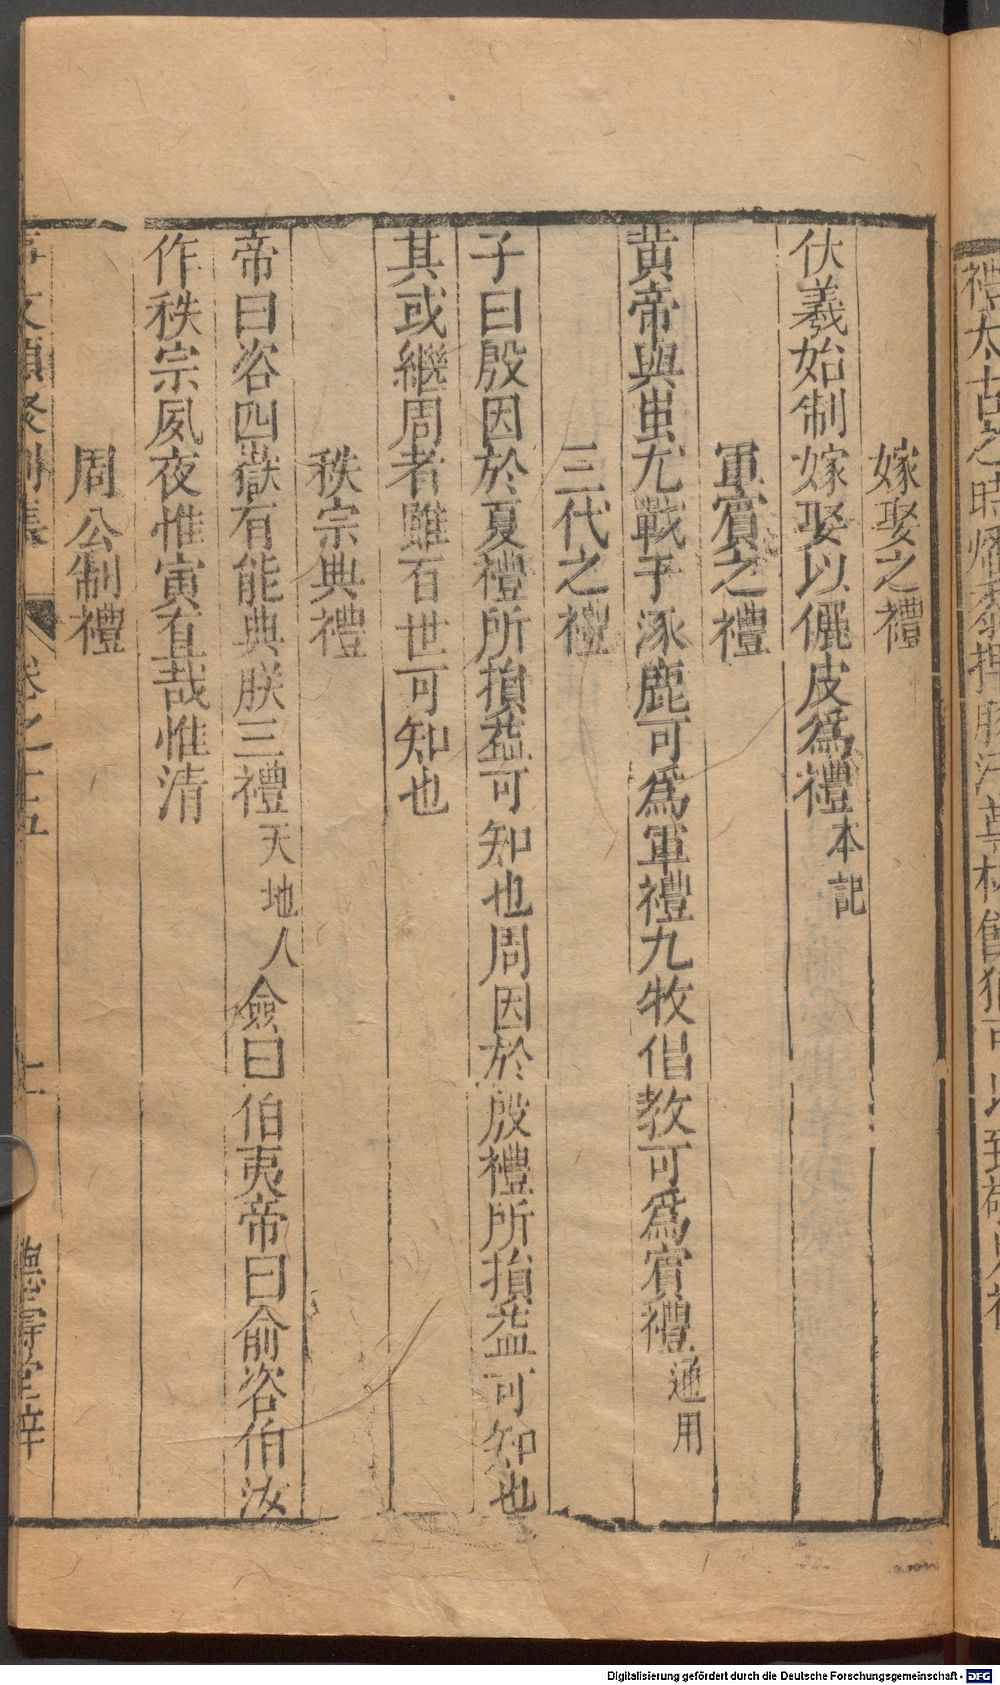 嫁娶之禮
伏羲始制嫁娶以儷皮爲禮本記
軍賓之禮
黃帝與蚩尤戰于涿鹿可爲軍禮九牧倡教可爲賓禮通用
三代之禮
子曰殷因於夏禮所損益可知也周因於殷禮所損益可知也
其或繼周者雖百世可知也
秩宗典禮
帝曰咨四嶽有能典朕三禮天地人僉曰伯夷帝曰俞咨伯汝
作秩宗夙夜惟寅直哉惟清
周公制禮
德壽堂梓
Digitalisierung gefördert durch die Deutsche Forschungsgemeinschaft - DFG